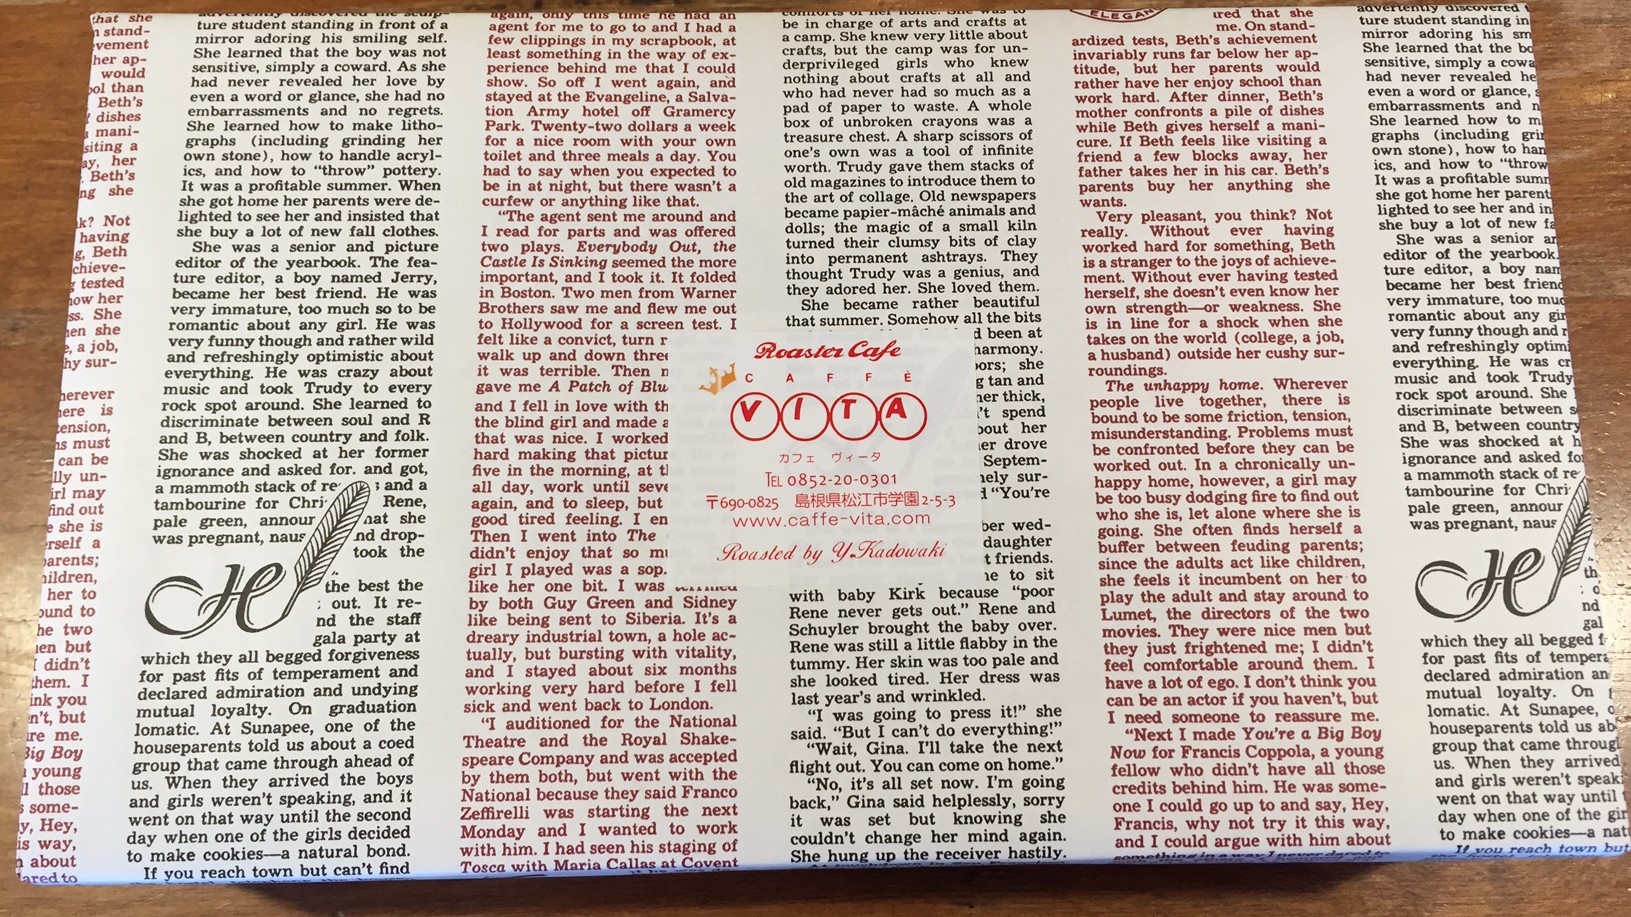 that she
stand-
vement
her ap-
would
ool than
Beth's
dishes
mani-
siting a
ay, her
Beth's
ng she
k? Not
having
g, Beth
chieve-
tested
now her
ss. She
en she
e, a job,
hy sur-
herever
here is
tension,
ns must
can be
lly un-
irl may
find out
she is
erself a
parents;
hildren,
her to
ound to
he two
en but
I didn't
hem. I
ink you
n't, but
re me.
Big Boy
young
ll those
some-
y, Hey,
is way,
about
ared to
ture student standing in front of a
mirror adoring his smiling self.
She learned that the boy was not
sensitive, simply a coward. As she
had never revealed her love by
even a word or glance, she had no
embarrassments and no regrets.
She learned how to make litho-
graphs (including grinding her
own stone), how to handle acryl-
ics, and how to "throw" pottery.
It was a profitable summer. When
she got home her parents were de-
lighted to see her and insisted that
she buy a lot of new fall clothes.
She was a senior and picture
editor of the yearbook. The fea-
ture editor, a boy named Jerry,
became her best friend. He was
very immature, too much so to be
romantic about any girl. He was
very funny though and rather wild
and refreshingly optimistic about
everything. He was crazy about
music and took Trudy to every
rock spot around. She learned to
discriminate between soul and R
and B, between country and folk.
She was shocked at her former
ignorance and asked for. and got,
a mammoth stack of re s and a
tambourine for Chri Rene,
pale green, annour hat she
was pregnant, naus nd drop-
took the
the best the
out. It re-
nd the staff
gala party at
H
which they all begged forgiveness
for past fits of temperament and
declared admiration and undying
mutual loyalty. On graduation
lomatic. At Sunapee, one of the
houseparents told us about a coed
group that came through ahead of
us. When they arrived the boys
and girls weren't speaking, and it
went on that way until the second
day when one of the girls decided
to make cookies—a natural bond.
If you reach town but can't find
again, only this time he had an
agent for me to go to and I had a
few clippings in my scrapbook, at
least something in the way of ex-
perience behind me that I could
show. So off I went again, and
stayed at the Evangeline, a Salva-
tion Army hotel off Gramercy
Park. Twenty-two dollars a week
for a nice room with your own
toilet and three meals a day. You
had to say when you expected to
be in at night, but there wasn't a
curfew or anything like that.
"The agent sent me around and
I read for parts and was offered
two plays. Everybody Out, the
Castle Is Sinking seemed the more
important, and I took it. It folded
in Boston. Two men from Warner
Brothers saw me and flew me out
to Hollywood for a screen test. I
felt like a convict, turn r
walk up and down three
it was terrible. Then n
gave me A Patch of Blu
and I fell in love with th
the blind girl and made a
that was nice. I worked
hard making that pictur
five in the morning, at th
all day, work until seve
again, and to sleep, but
good tired feeling. I en
Then I went into The
didn't enjoy that so mu
girl I played was a sop.
like her one bit. I was terrified
by both Guy Green and Sidney
like being sent to Siberia. It's a
dreary industrial town, a hole ac-
tually, but bursting with vitality,
and I stayed about six months
working very hard before I fell
sick and went back to London.
"I auditioned for the National
Theatre and the Royal Shake-
speare Company and was accepted
by them both, but went with the
National because they said Franco
Zeffirelli was starting the next
Monday and I wanted to work
with him. I had seen his staging of
Tosca with Maria Callas at Covent
comforts of her home. She was to
be in charge of arts and crafts at
a camp. She knew very little about
crafts, but the camp was for un-
derprivileged girls who knew
nothing about crafts at all and
who had never had so much as a
pad of paper to waste. A whole
box of unbroken crayons was a
treasure chest. A sharp scissors of
one's own was a tool of infinite
worth. Trudy gave them stacks of
old magazines to introduce them to
the art of collage. Old newspapers
became papier-mâché animals and
dolls; the magic of a small kiln
turned their clumsy bits of clay
into permanent ashtrays. They
thought Trudy was a genius, and
they adored her. She loved them.
She became rather beautiful
that summer. Somehow all the bits
d been at
harmony.
ors; she
g tan and
her thick,
't spend
out her
er drove
Septem-
nely sur-
d "You're
ber wed-
daughter
t friends.
ne to sit
with baby Kirk because "poor
Rene never gets out." Rene and
Schuyler brought the baby over.
Rene was still a little flabby in the
tummy. Her skin was too pale and
she looked tired. Her dress was
last year's and wrinkled.
"I was going to press it!" she
said. "But I can't do everything!"
"Wait, Gina. I'll take the next
flight out. You can come on home."
"No, it's all set now. I'm going
back," Gina said helplessly, sorry
it was set but knowing she
couldn't change her mind again.
She hung up the receiver hastily.
Roaster Cafe
CAFFÈ
VITA
カフェ ヴィータ
TEL 0852-20-0301
〒690-0825 島根県松江市学園2-5-3
www.caffe-vita.com
Roasted by Y.Kadowaki
ELEGAN
ured that she
me. On stand-
ardized tests, Beth's achievement
invariably runs far below her ap-
titude, but her parents would
rather have her enjoy school than
work hard. After dinner, Beth's
mother confronts a pile of dishes
while Beth gives herself a mani-
cure. If Beth feels like visiting a
friend a few blocks away, her
father takes her in his car. Beth's
parents buy her anything she
wants.
Very pleasant, you think? Not
really. Without ever having
worked hard for something, Beth
is a stranger to the joys of achieve-
ment. Without ever having tested
herself, she doesn't even know her
own strength—or weakness. She
is in line for a shock when she
takes on the world (college, a job,
a husband) outside her cushy sur-
roundings.
The unhappy home. Wherever
people live together, there is
bound to be some friction, tension,
misunderstanding. Problems must
be confronted before they can be
worked out. In a chronically un-
happy home, however, a girl may
be too busy dodging fire to find out
who she is, let alone where she is
going. She often finds herself a
buffer between feuding parents;
since the adults act like children,
she feels it incumbent on her to
play the adult and stay around to
Lumet, the directors of the two
movies. They were nice men but
they just frightened me; I didn't
feel comfortable around them. I
have a lot of ego. I don't think you
can be an actor if you haven't, but
I need someone to reassure me.
"Next I made You're a Big Boy
Now for Francis Coppola, a young
fellow who didn't have all those
credits behind him. He was some-
one I could go up to and say, Hey,
Francis, why not try it this way,
and I could argue with him about
something in a way I never dared to
advertently discovered
ture student standing in
mirror adoring his sm
She learned that the bo
sensitive, simply a cowa
had never revealed he
even a word or glance, s
embarrassments and n
She learned how to m
graphs (including grin
own stone), how to han
ics, and how to "throw
It was a profitable sum
she got home her parent
lighted to see her and in
she buy a lot of new fa
She was a senior an
editor of the yearbook.
ture editor, a boy nam
became her best friend
very immature, too muc
romantic about any gir
very funny though and r
and refreshingly optim
everything. He was cr
music and took Trudy
rock spot around. She l
discriminate between s
and B, between country
She was shocked at h
ignorance and asked fo
a mammoth stack of re
tambourine for Chri
pale green, annour
was pregnant, naus
H
th
nd
gal
which they all begged f
for past fits of tempera
declared admiration an
mutual loyalty. On g
lomatic. At Sunapee, o
houseparents told us ab
group that came through
us. When they arrived
and girls weren't speaki
went on that way until t
day when one of the gir
to make cookies—a natu
If you reach town but